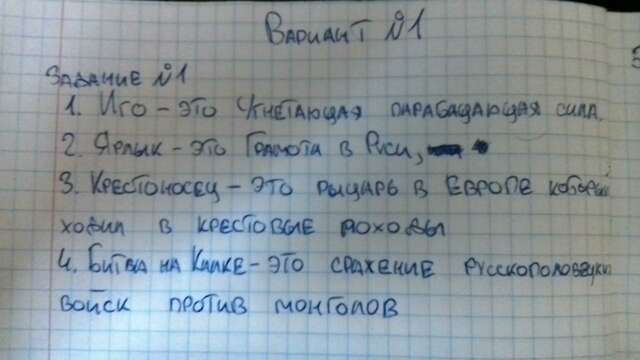 Вариант №1
Задание №1
1. Иго – это угнетающая парабащающая сила.
2. Ярлык – это Грамота в Руси,
3. Крестоносец – это рыцарь в Европе который
ходил в крестовые походы
4. Битва на Калке – это сражение русскополовецких
войск против монголов